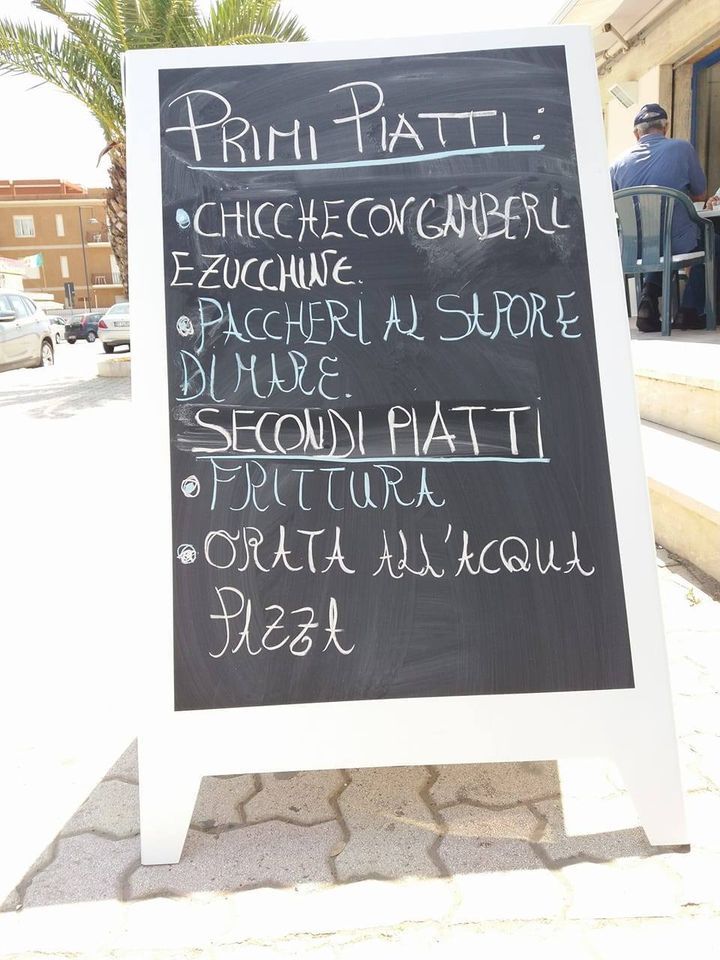 PRIMI PIATTI:
• CHICCHE CON GAMBERI
E ZUCCHINE.
• PACCHERI AL SAPORE
DI MARE.
SECONDI PIATTI
• FRITTURA
• ORATA ALL'ACQUA
PAZZA